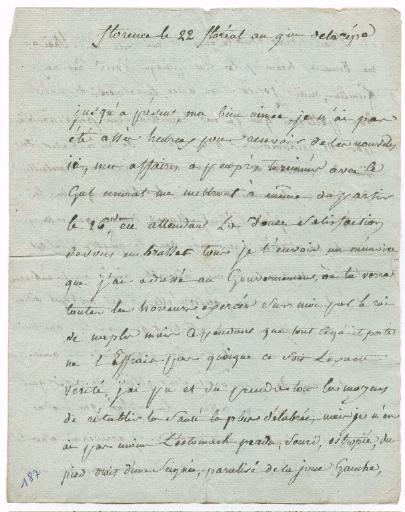 florence le 22 floréal an 9eme de la rép.
jusqu'a présent ma bien aimée, je n'ai pas
été assés heureux pour recevoir de tes nouvelles
ici, mes affaires a peuprès terminées avec le
Gal murat me mettront a même de partir
le 26, en attendant La Douce Satisfaction
de vous embrasser tous je t'envoie un mémoire
que j'ai adressé au Gouvernement, ou tu verras
toutes les horreurs exercées Sur moi par le roi
de naples mais cependant que tout ceci
ne t'Effraie pas quoique ce Soit La
vérité, j'ai pu et du prendre tous les moyens
de rétablir la Santé la plus délabrée, mais je n'en
ai pas moins L'estomach perdu, Sourd, estropié, du
pied droit d'une Saignée, paralisé de la joue Gauche,
187